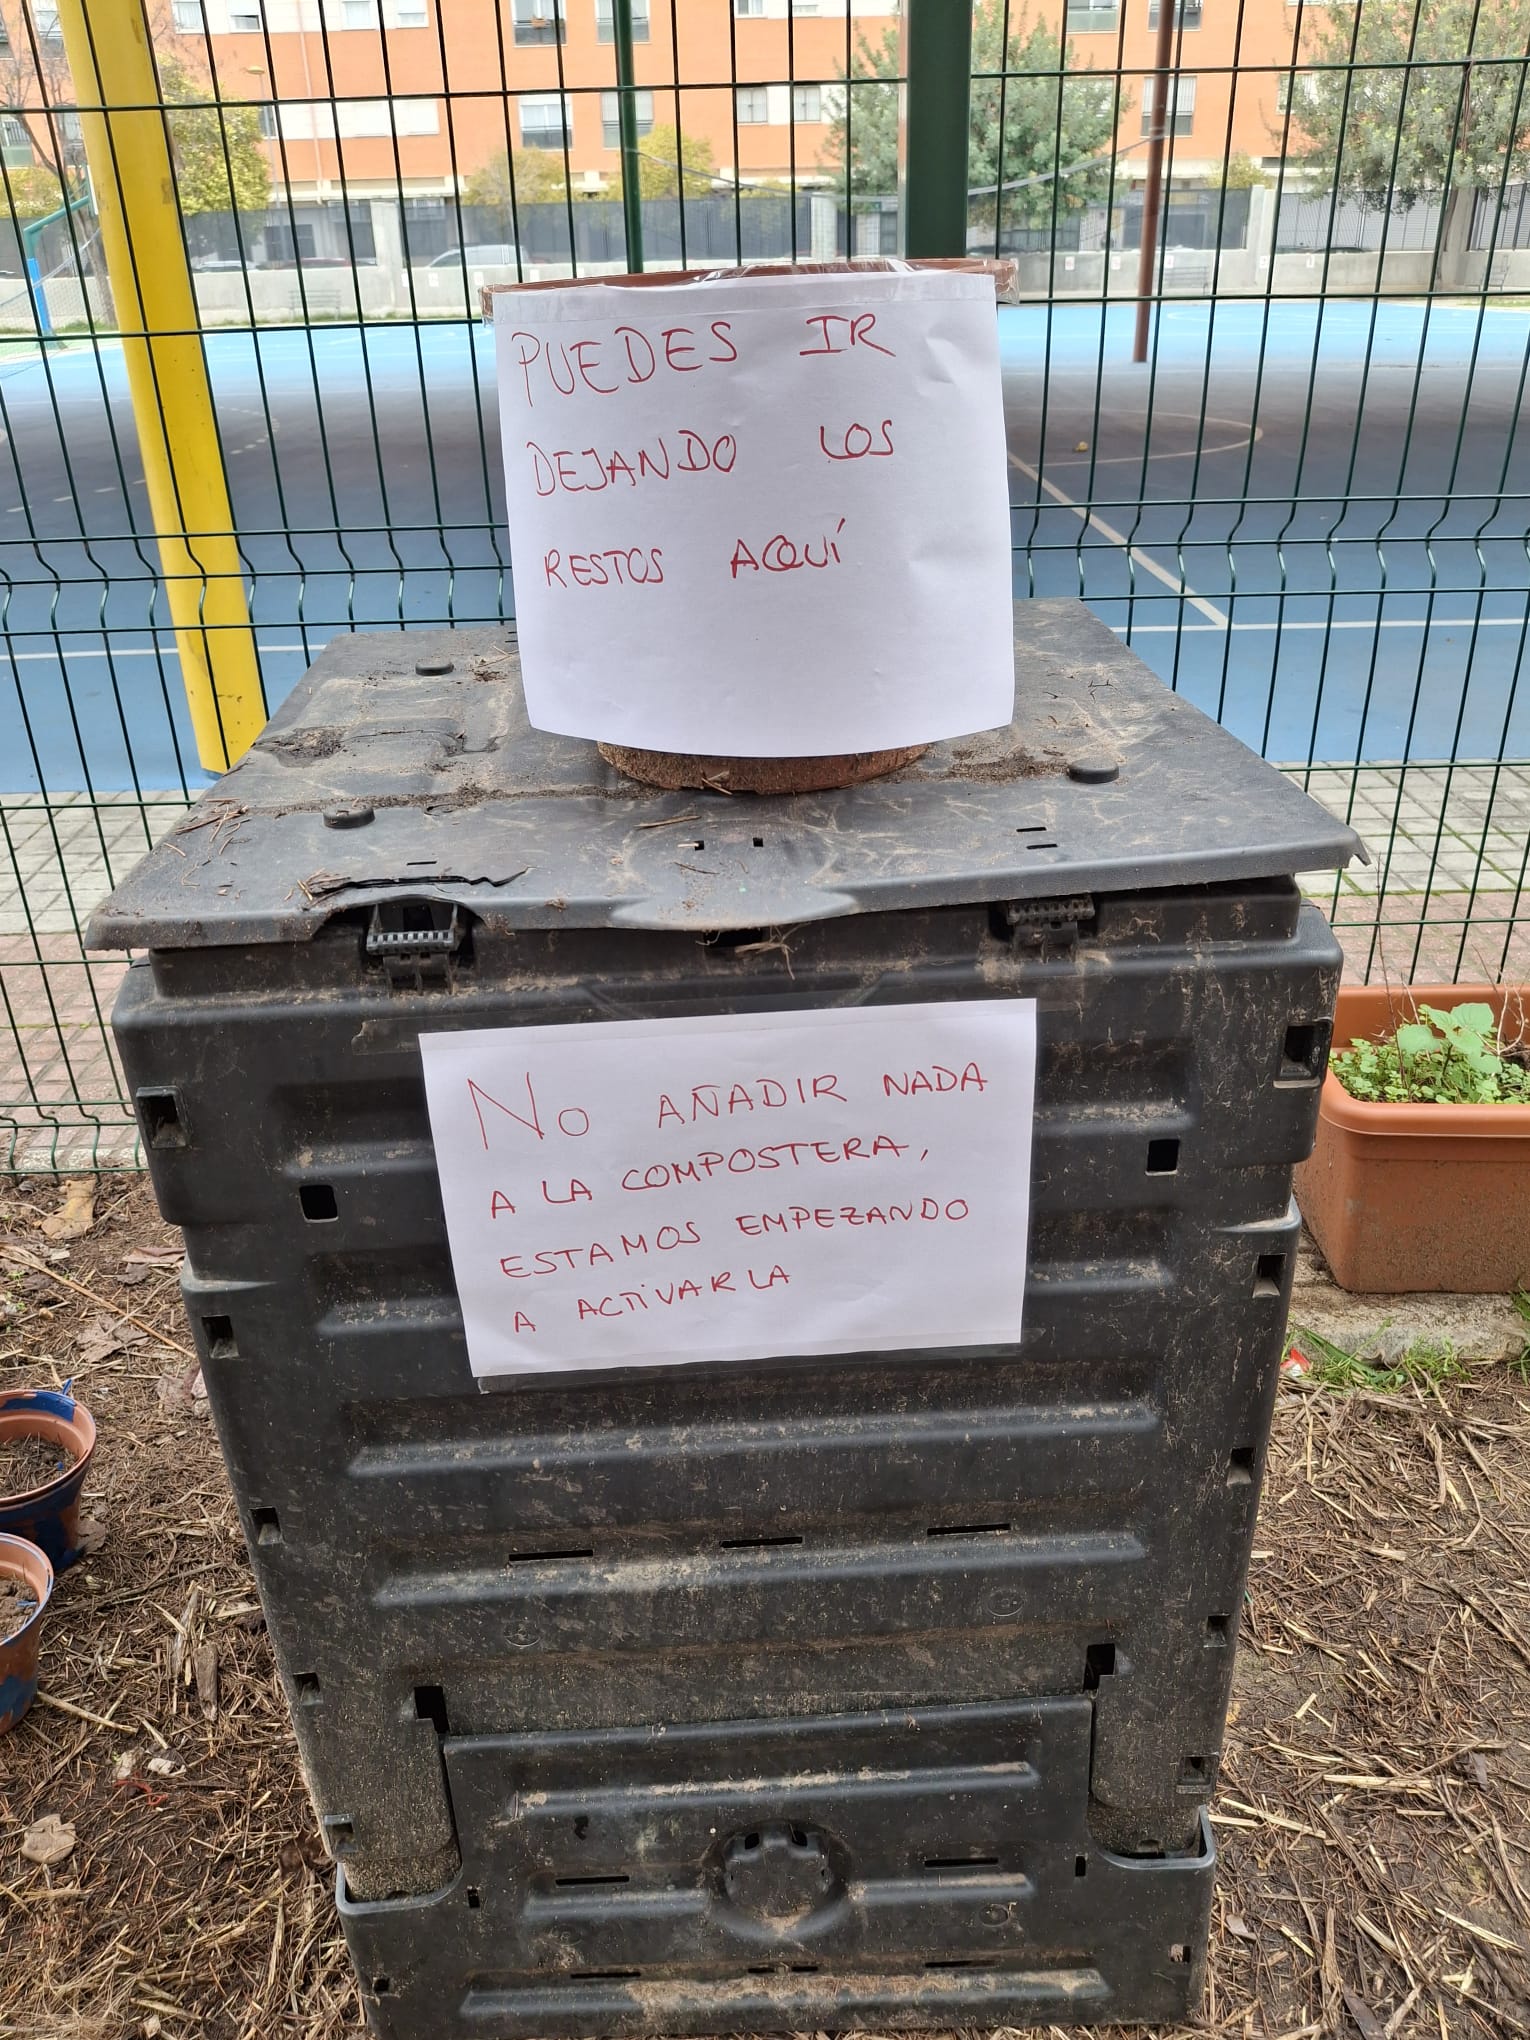 PUEDES IR
DEJANDO LOS
RESTOS AQUÍ
NO AÑADIR NADA
A LA COMPOSTERA,
ESTAMOS EMPEZANDO
A ACTIVARLA